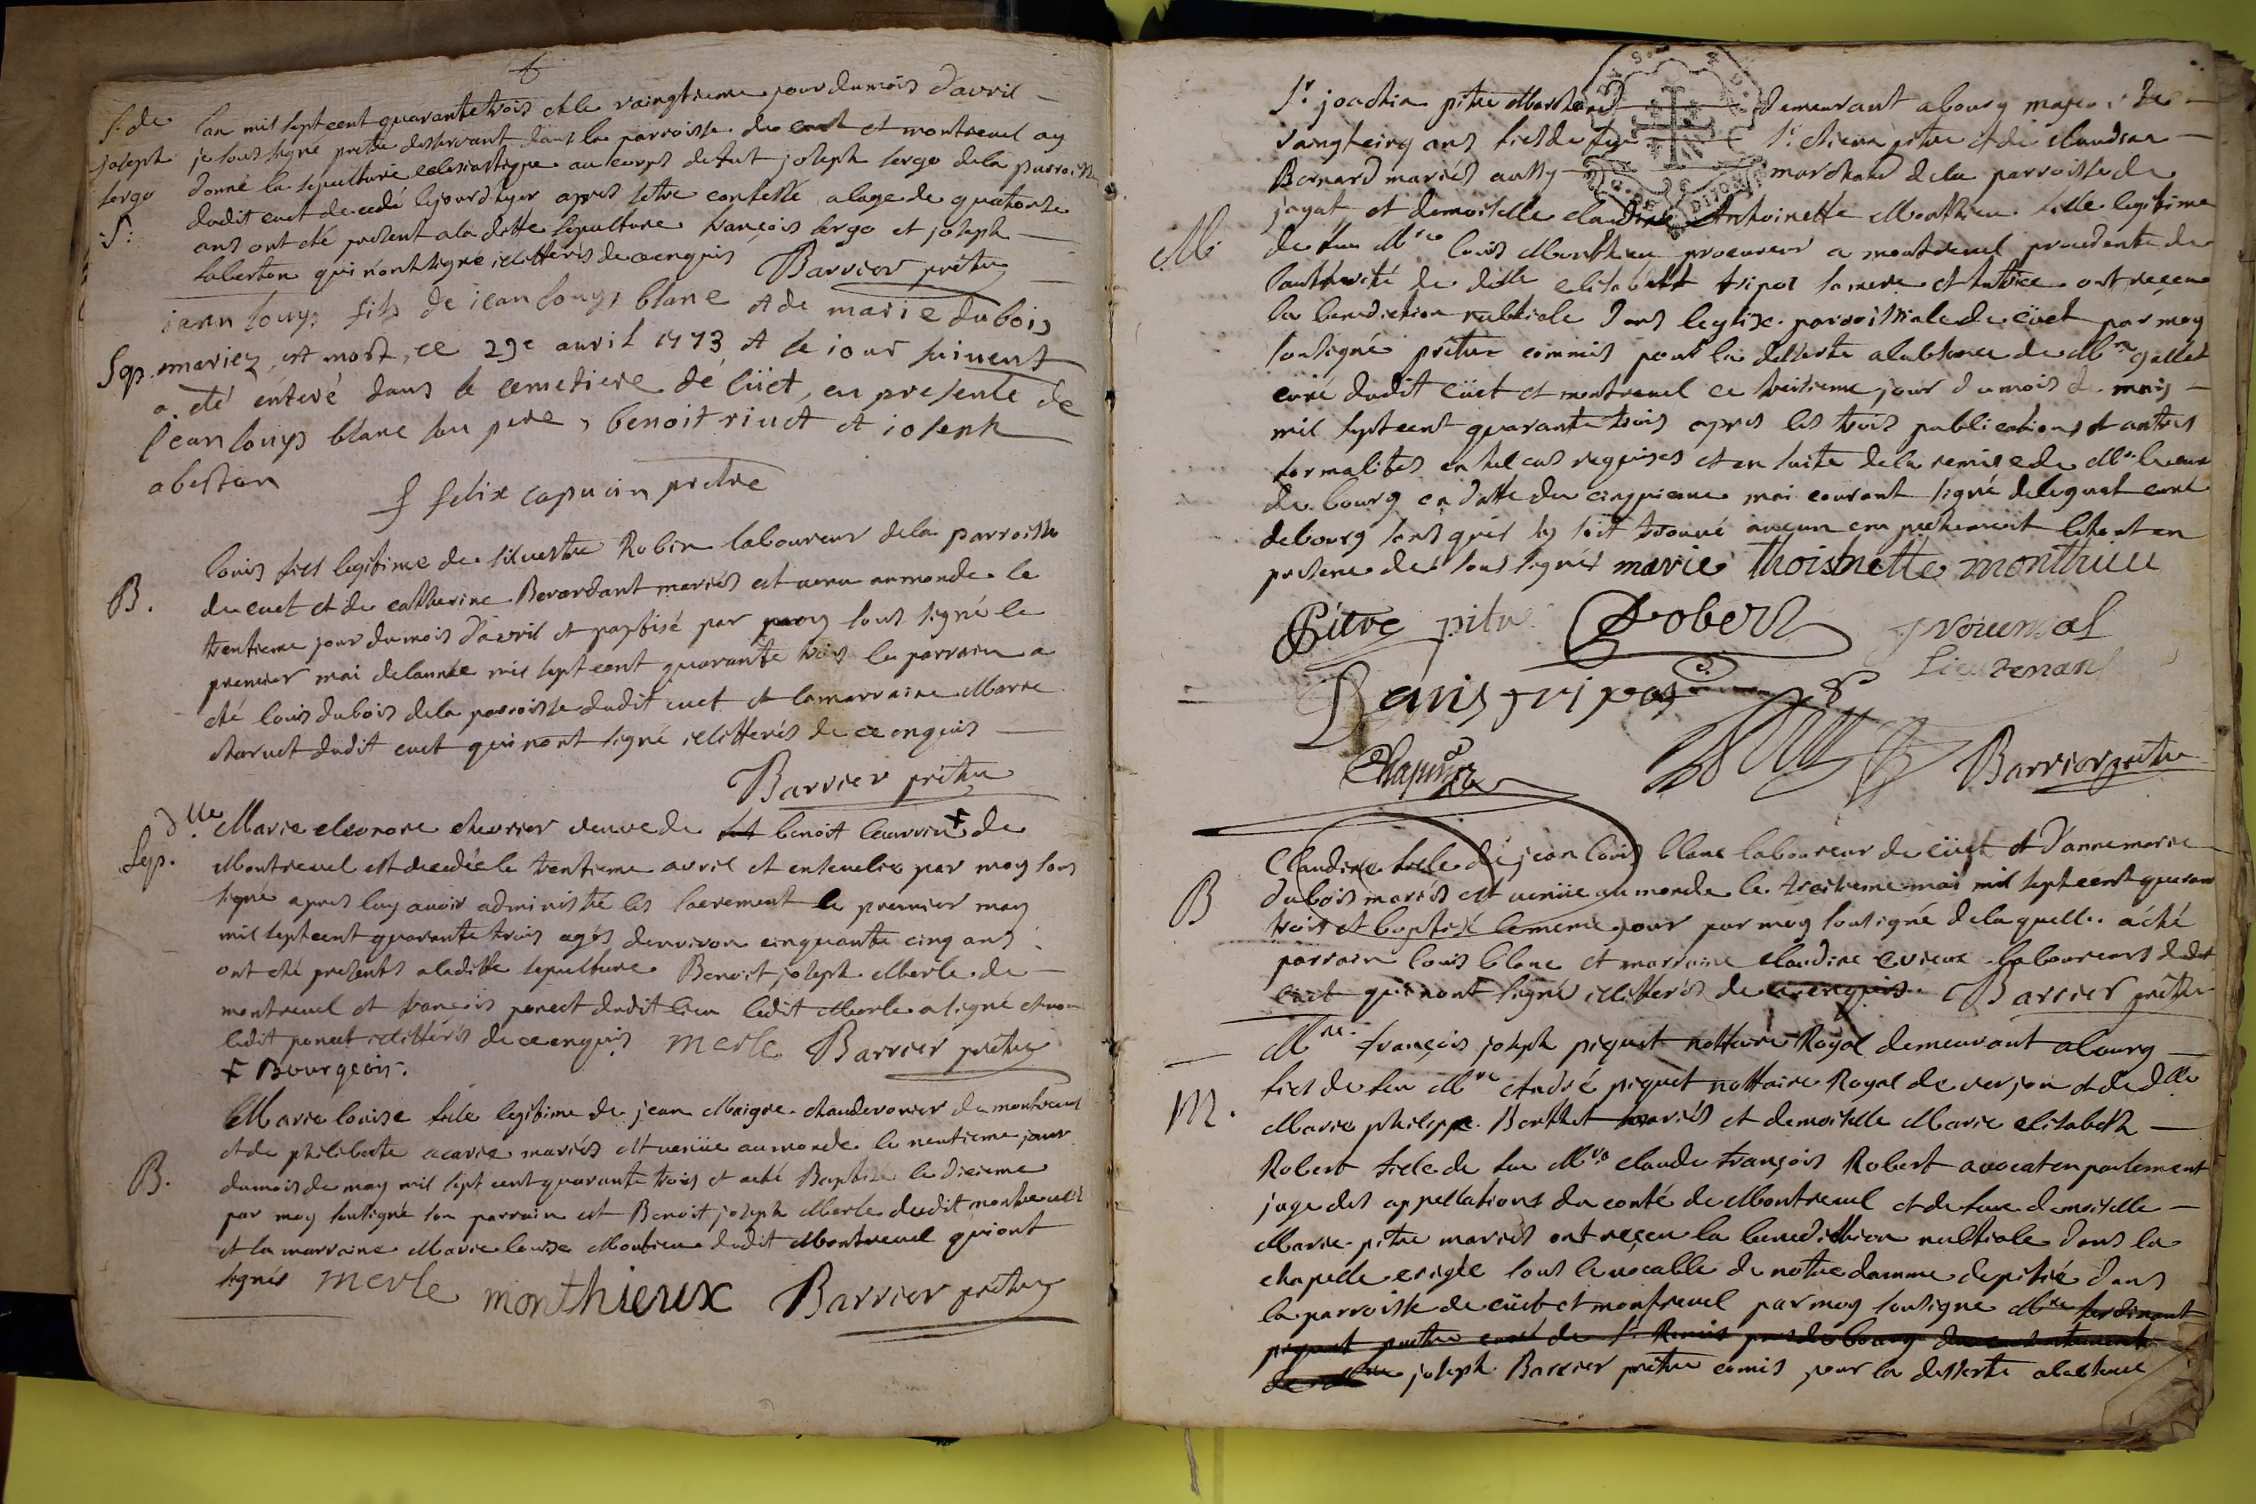 S. de
joseph
sergo
S:
Lan mil sept cent quarante trois et le vaingtieme jour du mois d'avril
je sous signé pretre desservant dans la parroisse de cuet et montrevel ay
donné la sepulture eclesiastique au corps de fut joseph sergo de la parroisse
dudit cuet decedé le jour d'hyer apres s'etre confessé a l'age de quatorse
ans ont eté present a la ditte sepulture françois sergo et joseph
laberton qui n'ont signé illitterés de ce enquis Barrier prêtre
Sep.
jean louys fils de jean louys blanc et de marie dubois
mariez, est mort, ce 29e avril 1743 et le jour suivent
a eté enteré dans le cemetiere de cüet, en presence de
jean louys blanc son pere, benoit riuet et joseph
aberton
f felix capucin pretre
B.
louis fils legitime de siluestre Robin laboureur de la parroisse
de cuet et de catherine Berardant mariés est venu au monde le
trentieme jour du mois d'avril et baptisé par moy sous signé le
premier mai de l'année mil sept cent quarante trois le parrain a
eté louis dubois de la parroisse dudit cuet et la marraine Marie
charuet dudit cuet qui n'ont signé illitterés de ce enquis
Barrier prêtre
Sep.
dlle Marie eleonore chevrier veuve de benoit + de
Montrevel est decedée le trentieme avril et ensevelie par moy sous
signé apres luy avoir administré les sacrement le premier may
mil sept cent quarante trois agés d'environ cinquante cinq ans
ont eté presents a laditte sepulture Benoit joseph Merle de
montrevel et françois ponect dudit lieu ledit Merle a signé et non
ledit ponect illitterés de ce enquis Merle Barrier prêtre
+ Bourgeois.
B.
Marie louise fille legitime de jean Maigre chauderonier de montrevel
et de philiberte acarie mariés est venüe au monde le neufieme jour
du mois de may mil sept cent quarante trois et a eté Baptisée le dixieme
par moy soussigné son parrain est Benoit joseph Merle dudit montrevel
et la marraine Marie louise Montieu dudit Montrevel qui ont
signés Merle monthieux Barrier prêtre
M.
Sr. joachin pitre Marchand demeurant a bourg majeur de
vaingt cinq ans fils de feu Sr. etiene pitre et de claudine
Bernard mariés aussy marchand de la parroisse de
jayat et demoiselle claudine Antoinette Monthieu fille legitime
de feu Mre louis Monthieu procureur a montrevel procedente de
l'authorité de dlle elisabett tripoz sa mere et tutrice ont reçeu
la benediction nubtiale dans l'eglise parroissiale de cüet par moy
soussigné prêtre commis pour la desserte a l'absence de Mre gallet
curé dudit cüet et montrevel ce treisieme jour du mois de may
mil sept cent quarante trois apres les trois publications et autres
formalités en tel cas requises et en suite de la remise de Mr le curé
de bourg en datte du cinquieme mai courant signé curé
de bourg sans qu'il s'y soit trouvé aucun empechement le tout en
presence des sous signés marie thoisnette monthieu
Pitre pitre Robert provensal
Lieutenant
Denis tripoz
Chapuis Barrier prêtre
B
Claudine fille de jean louis blanc laboureur de cüet et d'anne marie
dubois mariés est venüe au monde le treisieme mai mil sept cent quarante
trois et baptisé le meme jour par moy soussigné de laquelle a eté
parrain louis blanc et marraine claudine laboureurs dudit
cuet qui n'ont signé illitterés de ce enquis Barrier prêtre
M.
Mre. françois joseph piquet nottaire Royal demeurant a bourg
fils de feu Mre André piquet nottaire Royal de verjon et de dlle
Marie philippe Berthet mariés et demoiselle Marie elisabeth
Robert fille de feu Mre claude françois Robert avocat en parlement
juge des appellations du conté de Montrevel et de feüe demoiselle
Marie pitre mariés ont reçeu la benediction nubtiale dans la
chapelle erigée sous le vocable de notre damme de pitié dans
la parroisse de cüet et montrevel par moy soussigné Mre ferdinant
piquet prêtre curé de St. Remis pres de bourg du consentement
de Mre joseph Barrier prêtre comis pour la desserte a l'absence